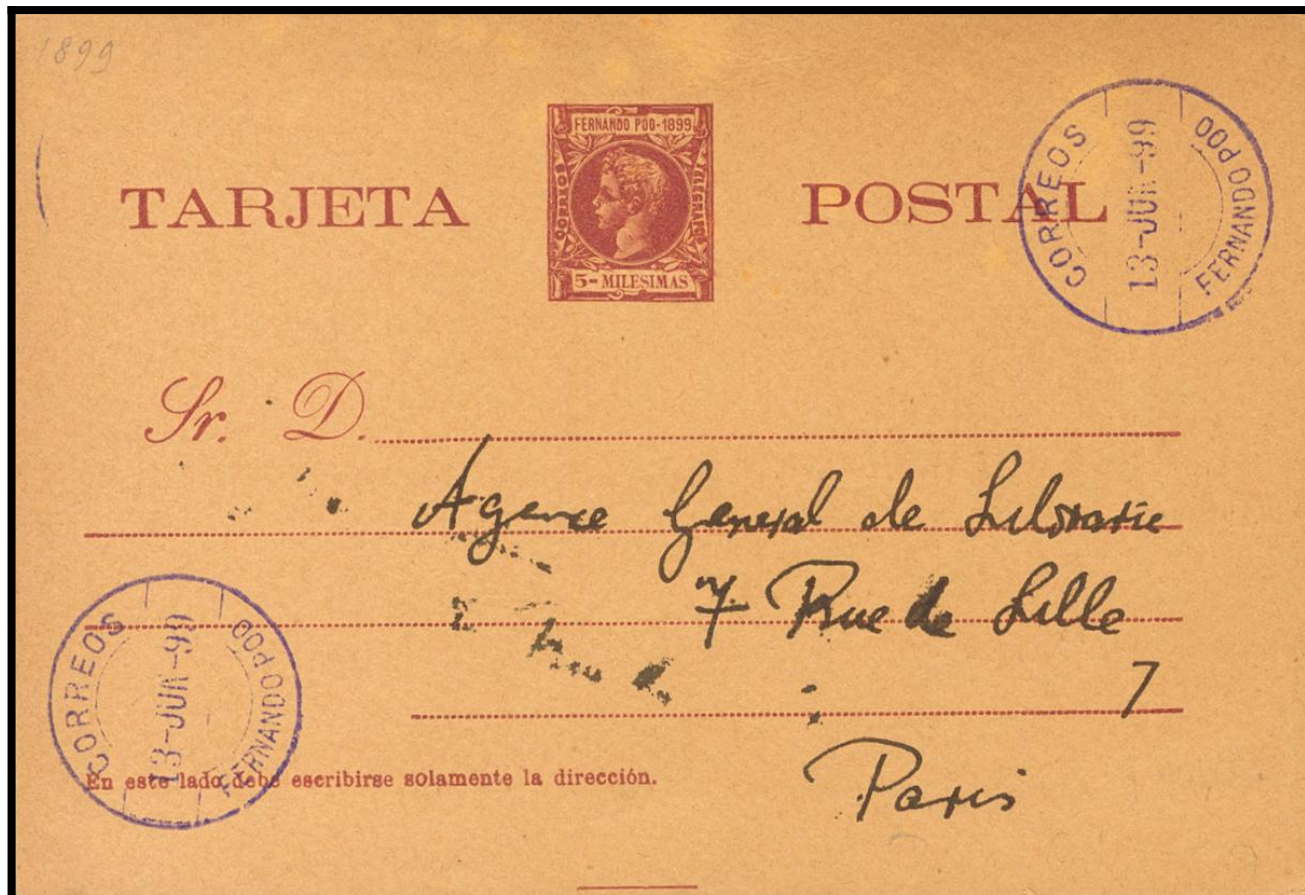 1899
FERNANDO POO-1899
CORREOS
TELEGRAFS
5-MILESIMAS
TARJETA POSTAL
CORREOS
13-JUN-99
FERNANDO POO
Sr. D.
Agence General de Librarie
7 Rue de Lille
7
Paris
CORREOS
13-JUN-99
FERNANDO POO
En este lado debe escribirse solamente la dirección.